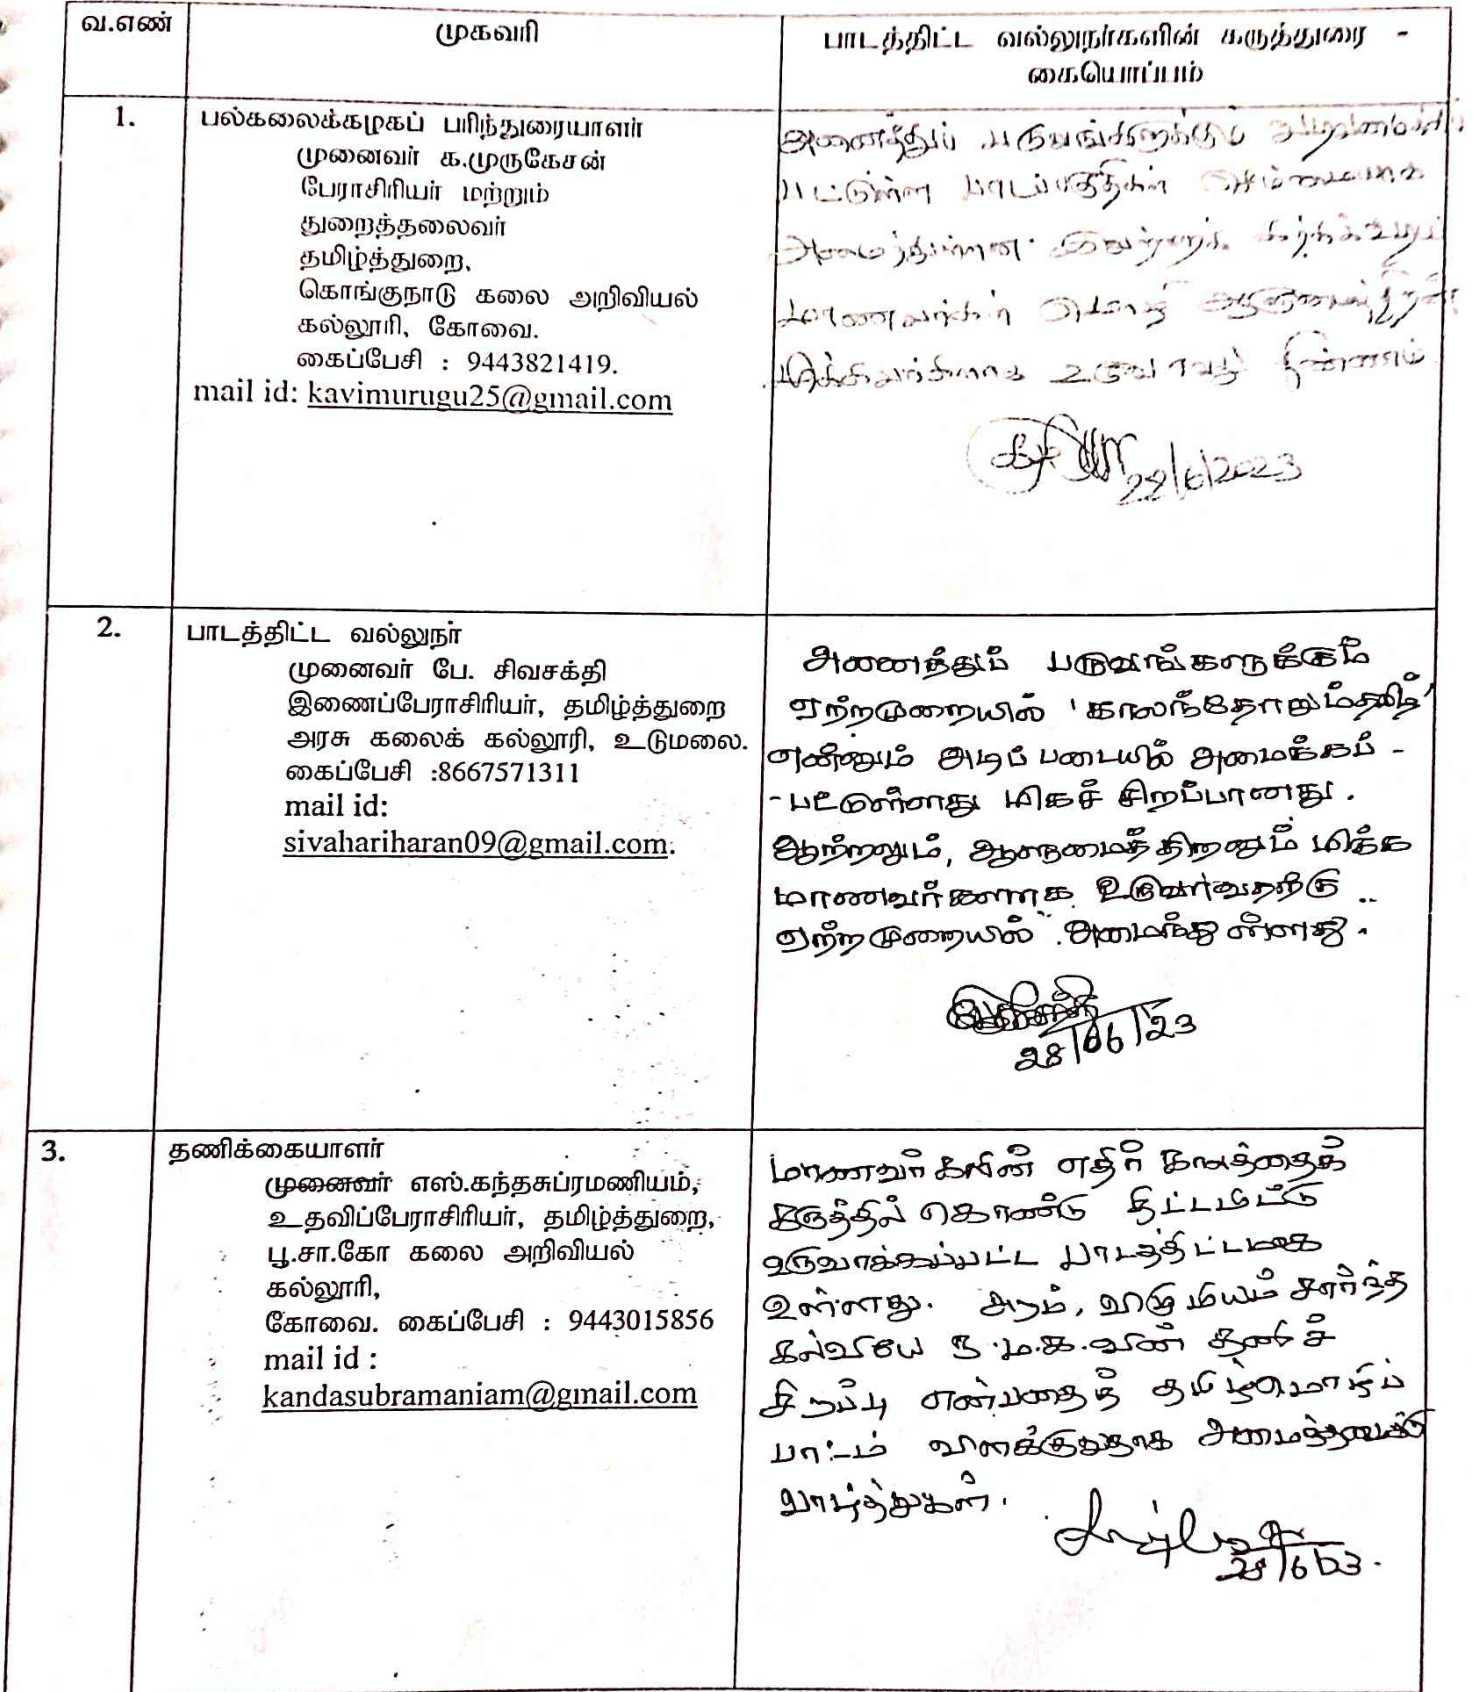 வ.எண்
முகவரி
பாடத்திட்ட வல்லுநர்களின் கருத்துரை -
கையொப்பம்
1.
பல்கலைக்கழகப் பரிந்துரையாளர்
முனைவர் க.முருகேசன்
பேராசிரியர் மற்றும்
துறைத்தலைவர்
தமிழ்த்துறை,
கொங்குநாடு கலை அறிவியல்
கல்லூரி, கோவை.
கைப்பேசி : 9443821419.
mail id: kavimurugu25@gmail.com
அனைத்துப் பருவங்களுக்கும்
பட்டுள்ள பாடப்பகுதிகள் செம்மையாக
அமைந்துள்ளன. இவற்றைக்
மாணவர்கள்
உருவாவது திண்ணம்
28/6/2023
2.
பாடத்திட்ட வல்லுநர்
முனைவர் பே. சிவசக்தி
இணைப்பேராசிரியர், தமிழ்த்துறை
அரசு கலைக் கல்லூரி, உடுமலை.
கைப்பேசி :8667571311
mail id:
sivahariharan09@gmail.com.
அனைத்துப் பருவங்களுக்கும்
ஏற்றமுறையில் 'காலந்தோறும்தமிழ்'
என்னும் அடிப்படையில் அமைக்கப் -
- பட்டுள்ளது மிகச் சிறப்பானது.
ஆற்றலும், ஆளுமைத்திறனும் மிக்க
மாணவர்களாக உருவாவதற்கு
ஏற்றமுறையில் அமைந்துள்ளது.
28/06/23
3.
தணிக்கையாளர்
முனைவர் எஸ்.கந்தசுப்ரமணியம்,
உதவிப்பேராசிரியர், தமிழ்த்துறை,
பூ.சா.கோ கலை அறிவியல்
கல்லூரி,
கோவை. கைப்பேசி : 9443015856
mail id :
kandasubramaniam@gmail.com
மாணவர்களின் எதிர்காலத்தைக்
கருத்தில் கொண்டு திட்டமிட்டு
உருவாக்கப்பட்ட பாடத்திட்டமாக
உள்ளது. அறம், விழுமியம் சார்ந்த
கல்வியே ந.ம.க.வின் தனிச்
சிறப்பு என்பதைத் தமிழ்மொழிப்
பாடம் விளக்குவதாக
வாழ்த்துகள்.
28/6/23.